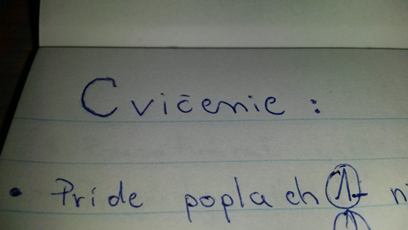 Cvičenie :
• Pride poplach